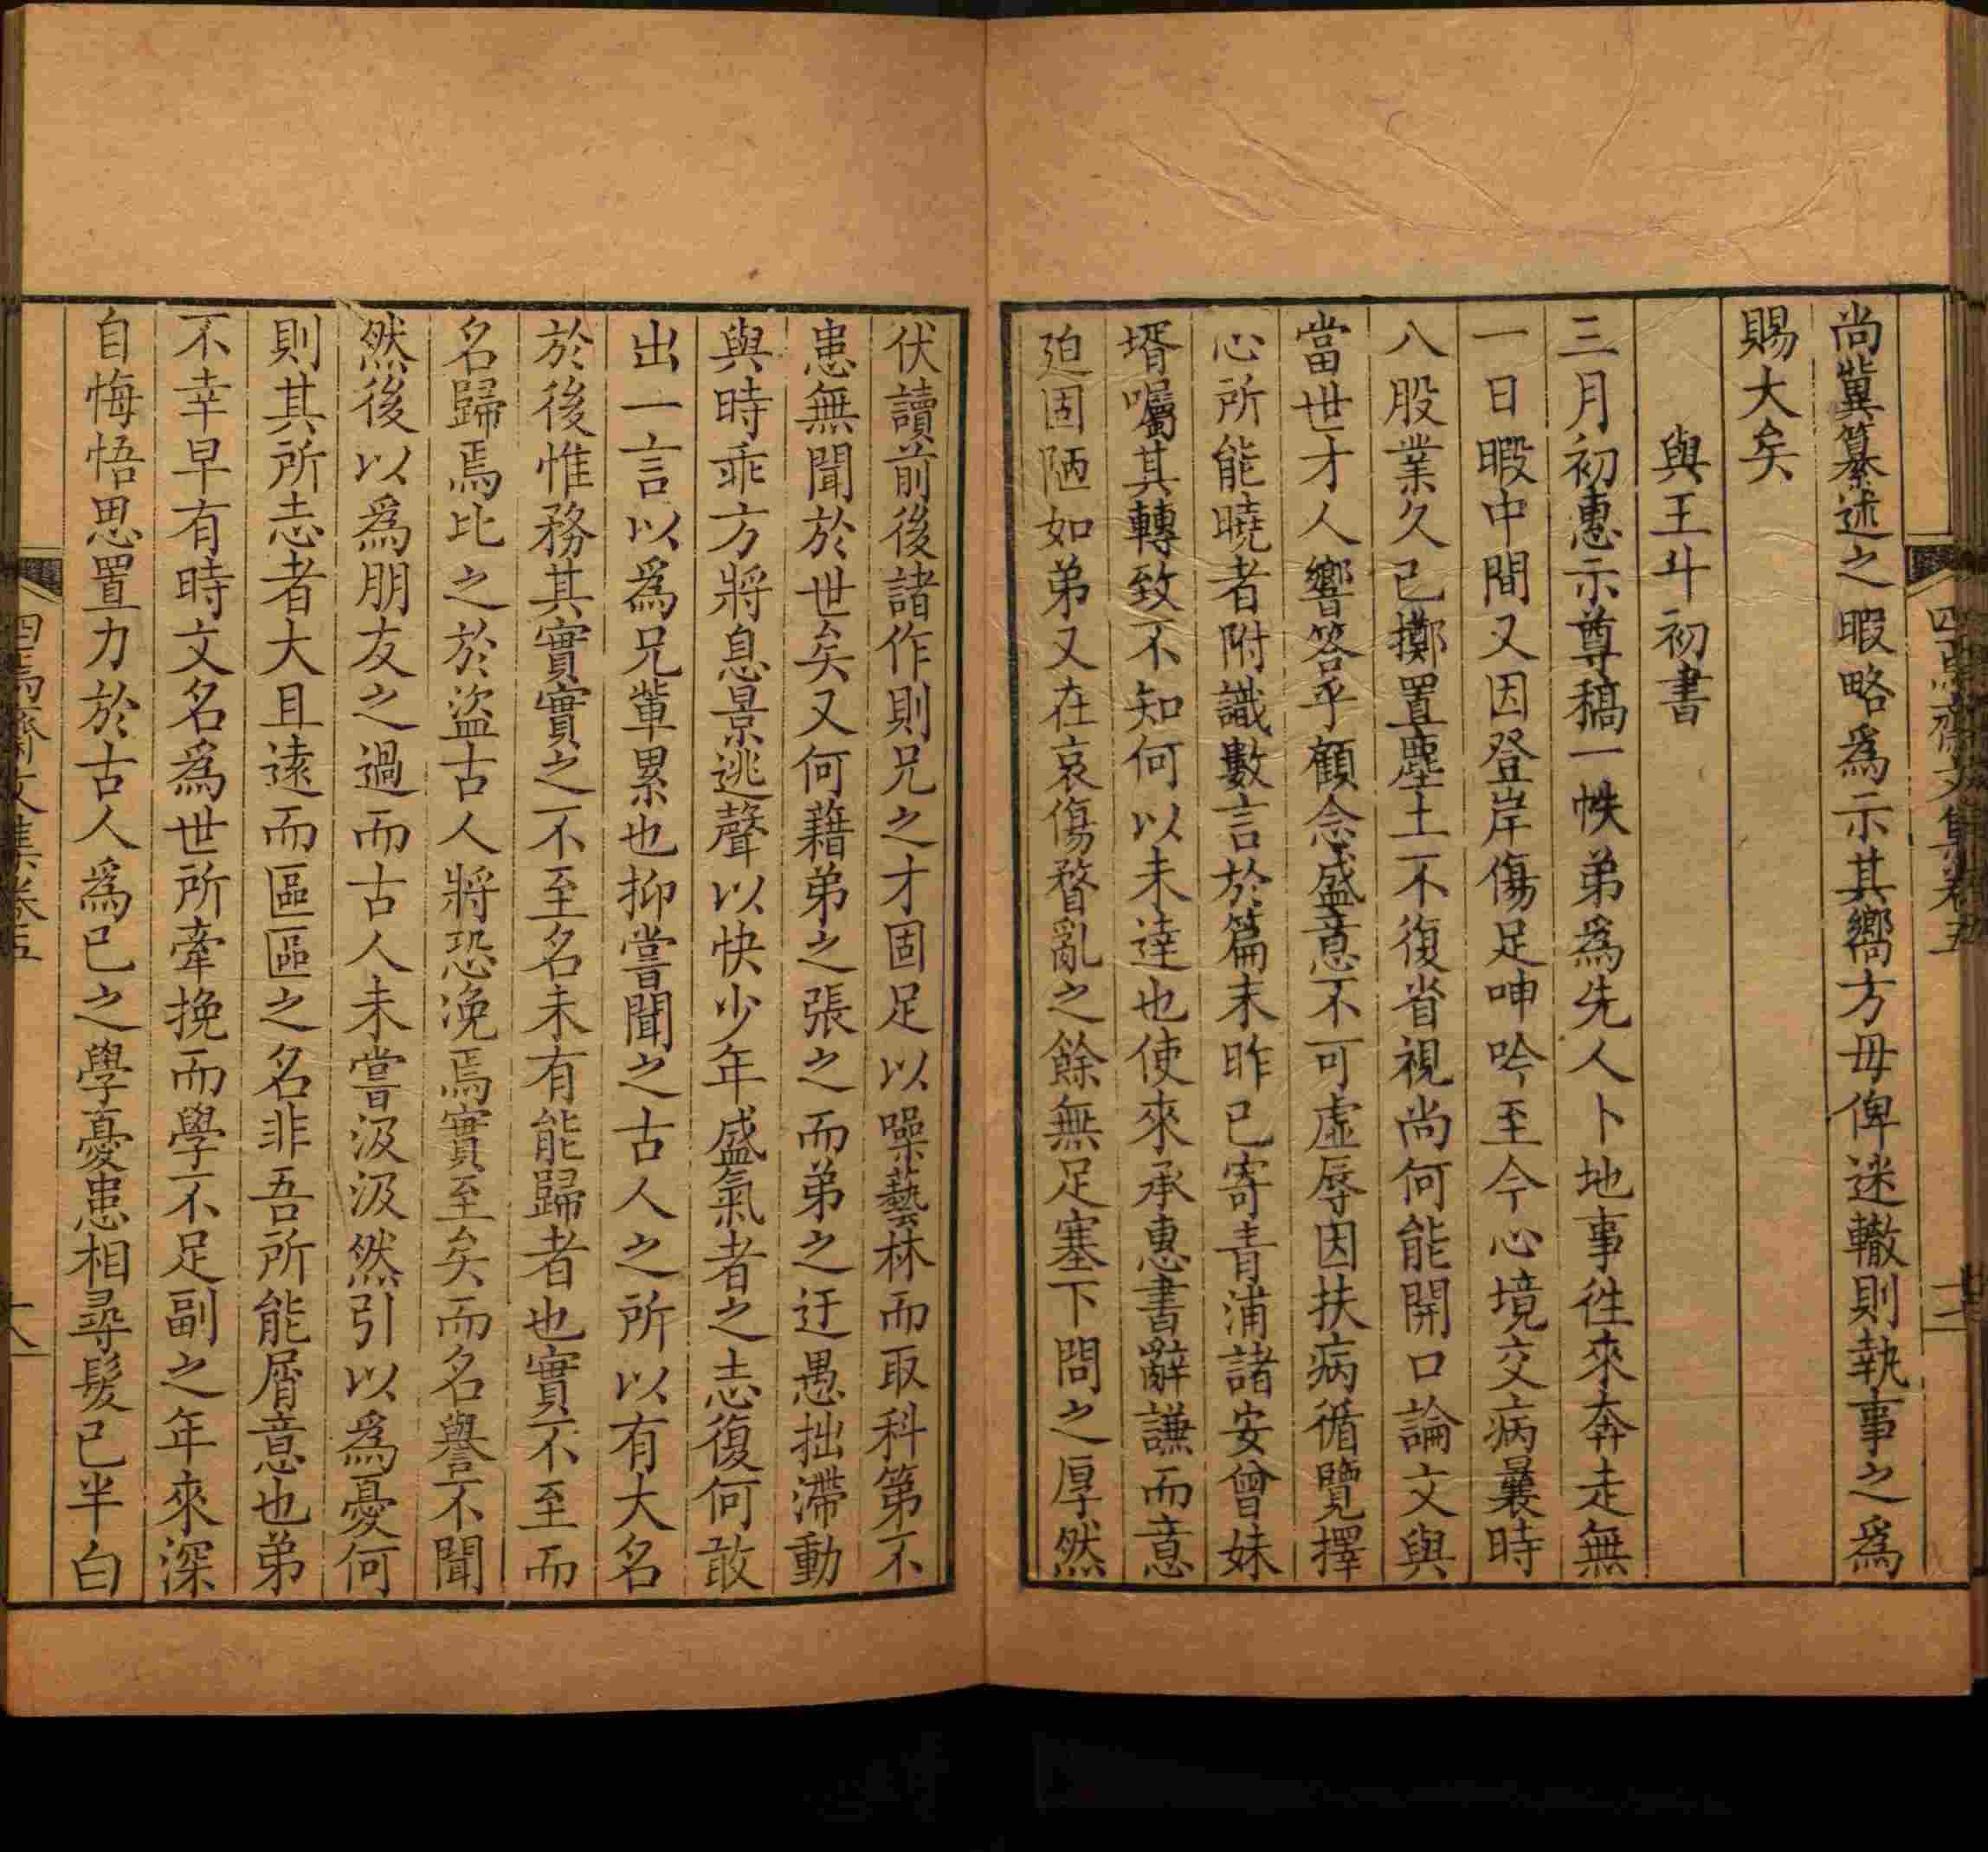 尚冀纂述之暇略為示其嚮方毋俾迷轍則執事之為
賜大矣
與王斗初書
三月初惠示尊稿一帙弟為先人卜地事徃來奔走無
一日暇中間又因登岸傷足呻吟至今心境交病曩時
八股業久已擲置塵土不復省視尚何能開口論文與
當世才人響答乎顧念盛意不可虛辱因扶病循覽擇
心所能曉者附識數言於篇末昨已寄青浦諸安曾妹
壻囑其轉致不知何以未達也使來承惠書辭謙而意
廹固陋如弟又在哀傷瞀亂之餘無足塞下問之厚然
伏讀前後諸作則兄之才固足以噪藝林而取科第不
患無聞於世矣又何藉弟之張之而弟之迂愚拙滯動
與時乖方將息景逃聲以快少年盛氣者之志復何敢
出一言以為兄輩累也抑嘗聞之古人之所以有大名
於後惟務其實實之不至名未有能歸者也實不至而
名歸焉比之於盜古人將恐浼焉實至矣而名譽不聞
然後以為朋友之過而古人未嘗汲汲然引以為憂何
則其所志者大且遠而區區之名非吾所能屑意也弟
不幸早有時文名為世所牽挽而學不足副之年來深
自悔悟思置力於古人為己之學憂患相尋髮已半白
四焉齋文集卷五